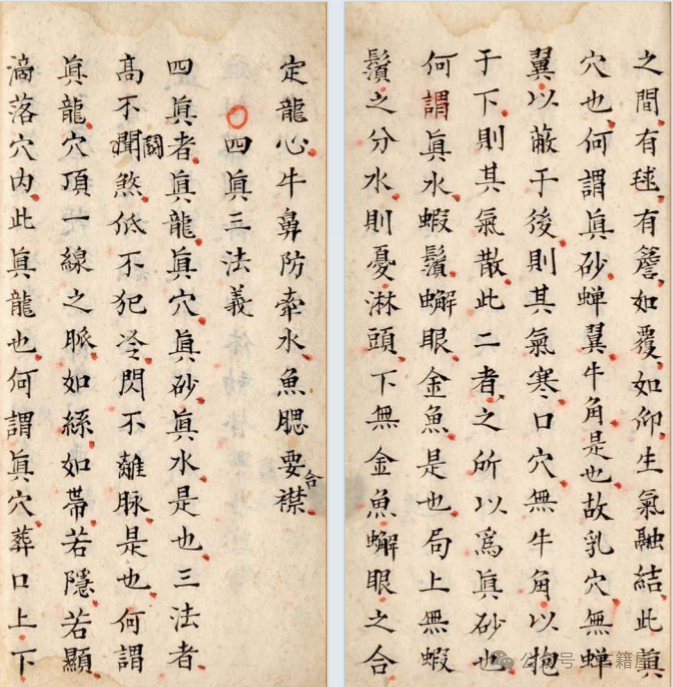 定龍心牛鼻防牽水魚腮要合襟
○四眞三法義
四眞者眞龍眞穴眞砂眞水是也三法者
高不聞鬪煞低不犯冷閃不離脉是也何謂
眞龍穴頂一線之脈如絲如帶若隱若顯
滴落穴内此眞龍也何謂眞穴葬口上下
之間有毬有簷如覆如仰生氣融結此眞
穴也何謂眞砂蝉翼牛角是也故乳穴無蝉
翼以蔽于後則其氣寒口穴無牛角以抱
于下則其氣散此二者之所以爲眞砂也
何謂眞水蝦鬚蠏眼金魚是也局上無蝦
鬚之分水則憂淋頭下無金魚蠏眼之合